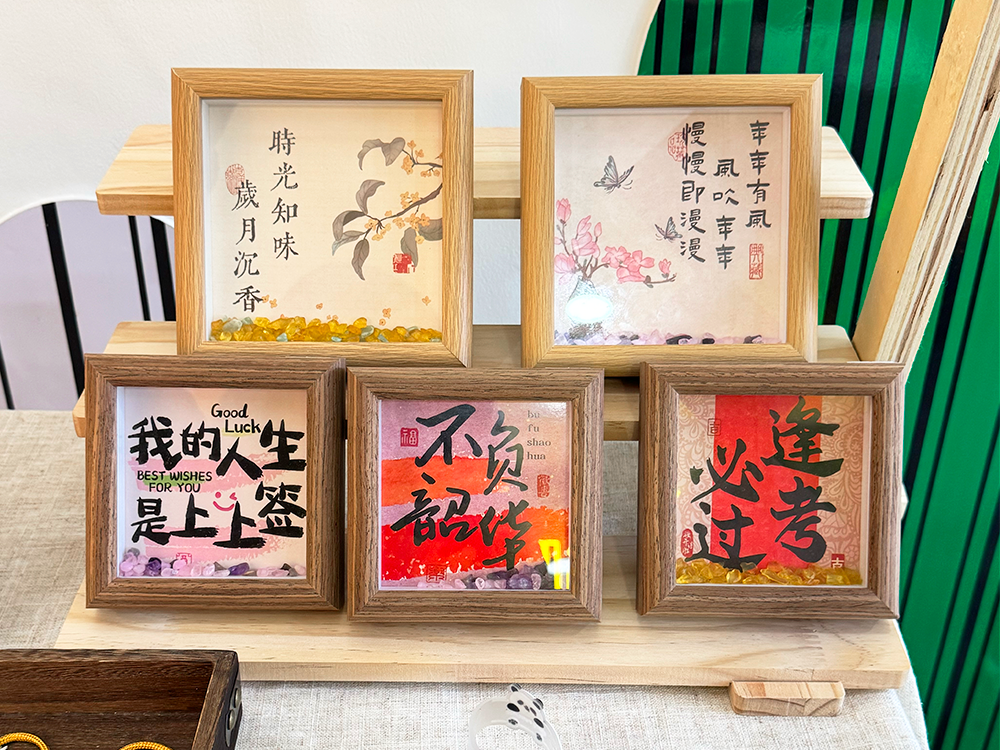 時光知味
歲月沉香
年年有風
風吹年年
慢慢即漫漫
Good
Luck
我的人生
BEST WISHES
FOR YOU
是上上签
福
不负
韶华
bu
fu
shao
hua
逢考
必过
吉